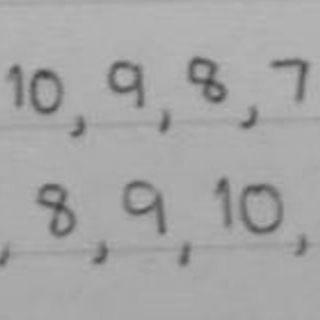 10, 9, 8, 7
, 8, 9, 10,